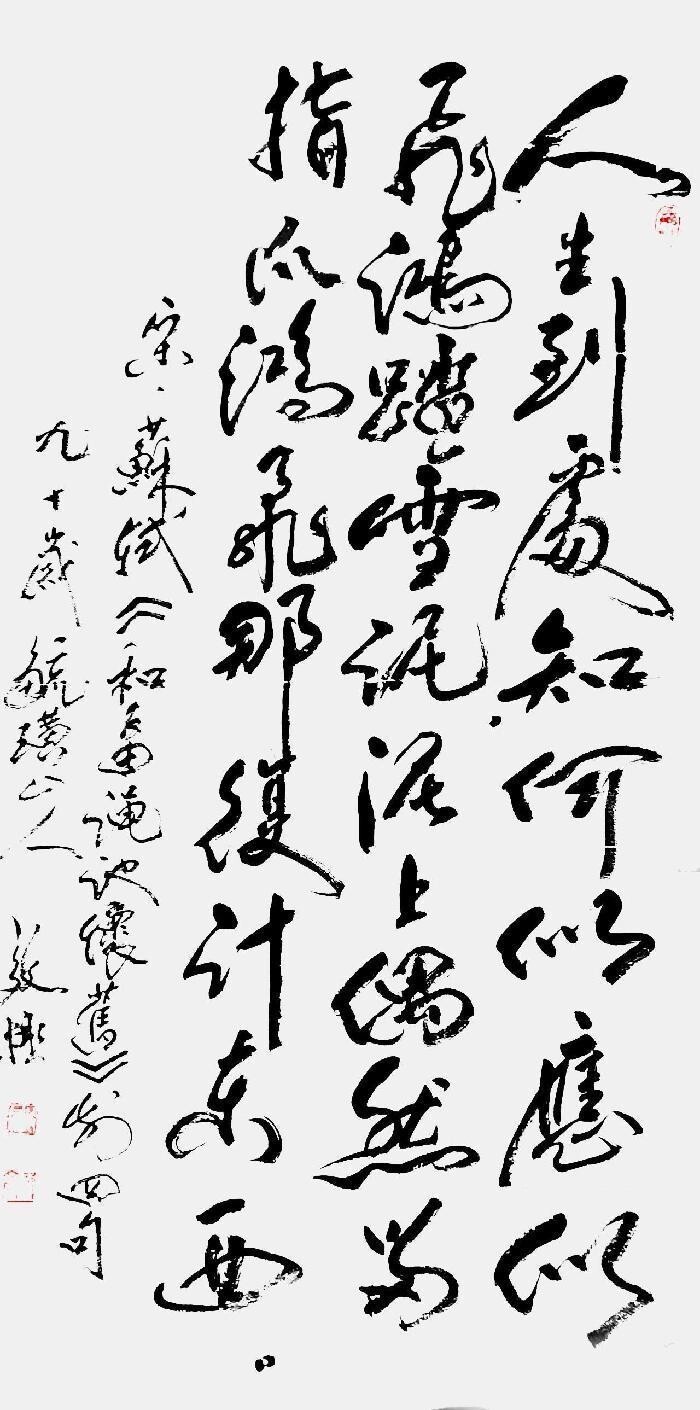 人生到處知何似應似
飛鴻踏雪泥泥上偶然留
指爪鴻飛那復計東西。
宋、蘇軾《和子由澠池懷舊》前四句
九十歲毓璜山人